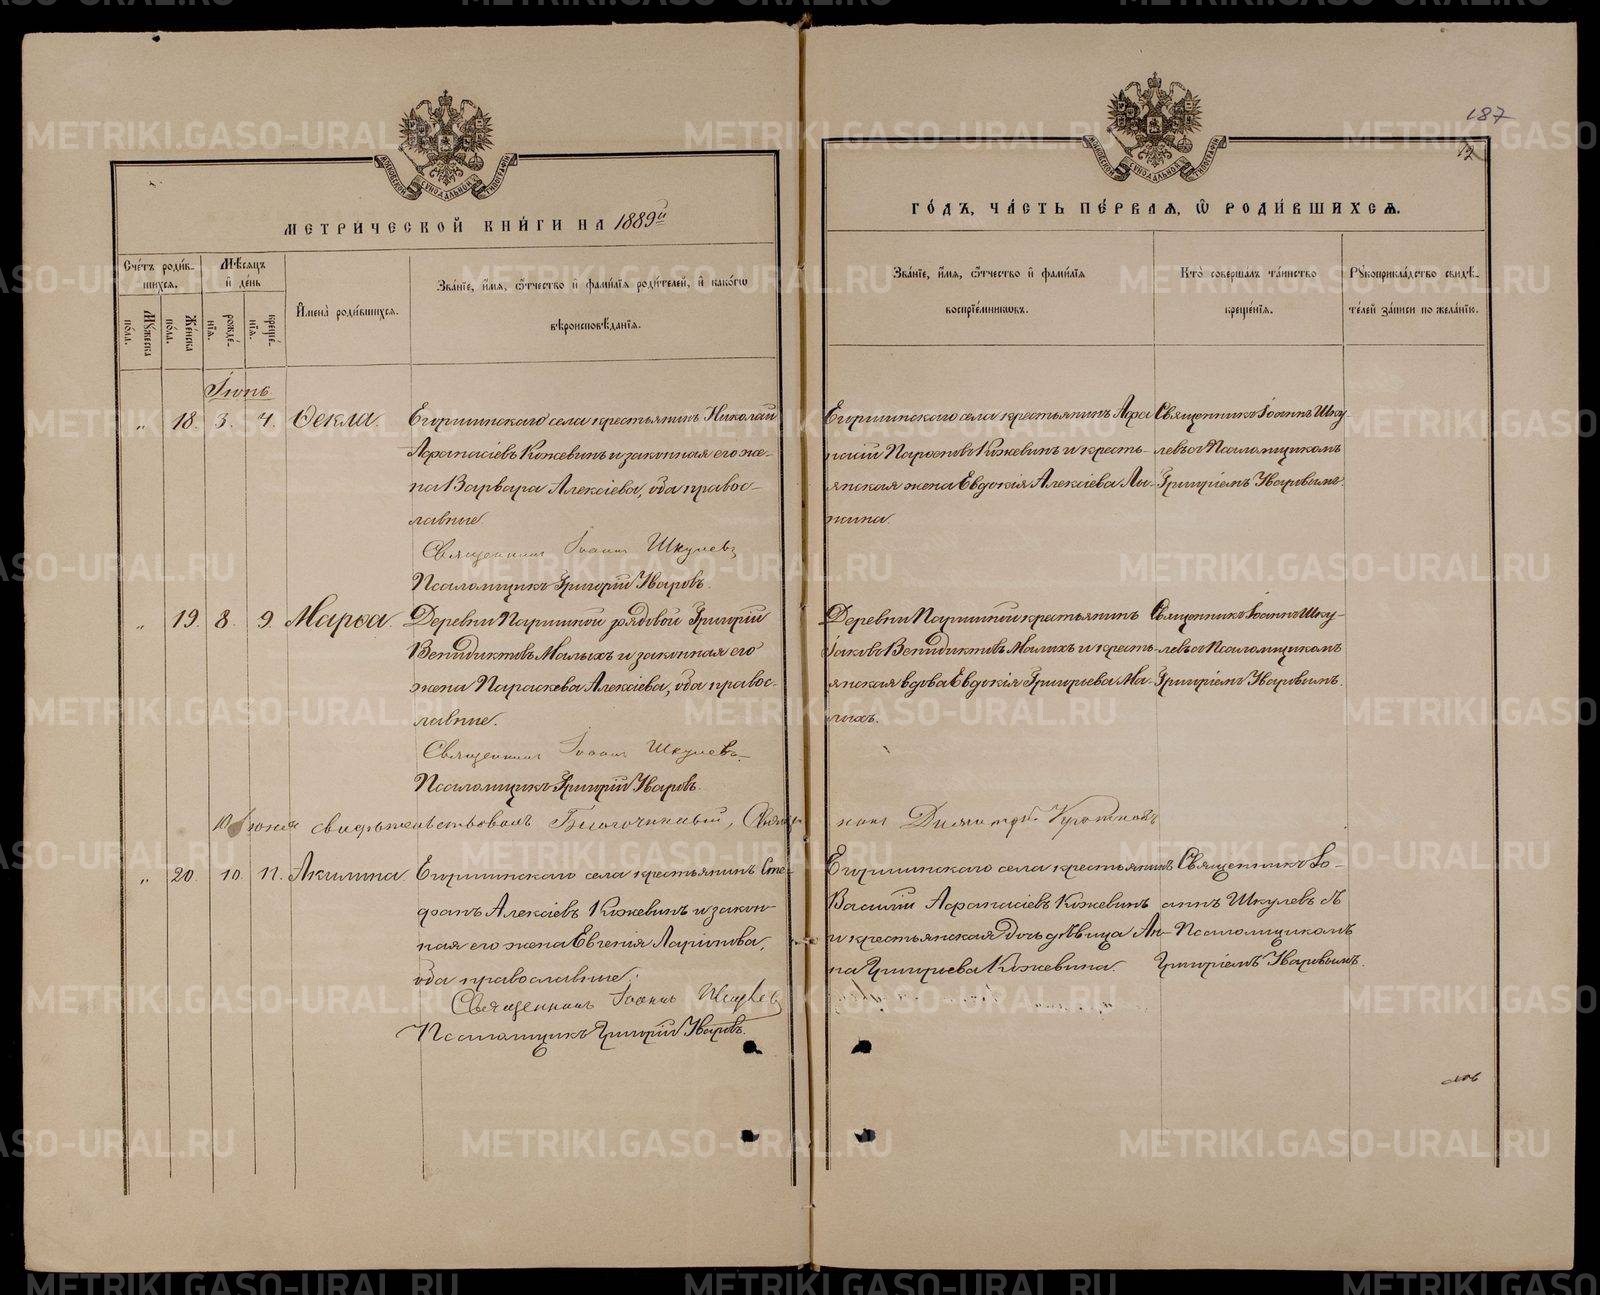 187
12
МЕТРИЧЕСКОЙ КНИГИ НА 1889й
ГОДЪ, ЧАСТЬ ПЕРВАЯ, Ѿ РОДИВШИХСЯ.
Счетъ родив-
шихся.
Мѣсяцъ
и день
Мужеска
пола.
Женска
пола.
рожде-
нія.
креще-
нія.
Имена родившихся.
Званіе, имя, ѿтчество и фамилія родителей, и какогѡ
вѣроисповѣданія.
Званіе, имя, ѿтчество и фамилія
воспріемниковъ.
Кто совершалъ таинство
крещенія.
Рукоприкладство свидѣ-
телей записи по желанію.
Іюнь
„ 18. 3. 4. Ѳекла.
Егоршинскаго села крестьянинъ Николай
Аѳанасіевъ Кожевинъ и законная его же-
на Варвара Алексіева, оба правос-
лавные
Священникъ Іоаннъ Шкулевъ
Псаломщикъ Григорій Уваровъ.
Егоршинскаго села крестьянинъ Аѳа
насій Кожевинъ и кресть-
янская жена Евдокія Алексіева
Священникъ Іоаннъ Шку
левъ съ Псаломщикомъ
Григоріемъ Уваровыме.
„ 19. 8. 9. Марѳа.
Деревни Паршиной рядовой Григорій
Венидиктовъ Малыхъ и законная его
жена Параскева Алексіева, оба правос-
лавные.
Священникъ Іоаннъ Шкулевъ
Псаломщикъ Григорій Уваровъ.
Деревни Паршиной крестьянинъ
Іаковъ Венидиктовъ Малыхъ и кресть-
янская вдова Евдокія Григориева Ма-
лыхъ.
Священникъ Іоаннъ Шку-
левъ съ Псаломщикомъ
Григоріемъ Уваровымъ.
10 іюня свидѣтельствовалъ Благочинный, Священ
никъ Димитрій
„ 20. 10. 11. Акилина.
Егоршинскаго села крестьянинъ Сте-
фанъ Алексіевъ Кожевинъ и закон-
ная его жена Евгенія Ларіонова,
оба православные.
Священникъ Іоаннъ Шкулев
Псаломщикъ Григорій Уваровъ.
Егоршинскаго села крестьянинъ
Василій Аѳанасіевъ Кожевинъ
и крестьянская дочь дѣвица Ан-
на Григорьева Кожевина.
Священникъ Іо-
аннъ Шкулевъ съ
Псаломщикомъ
Григоріемъ Уваровымъ.
METRIKI.GASO-URAL.RU